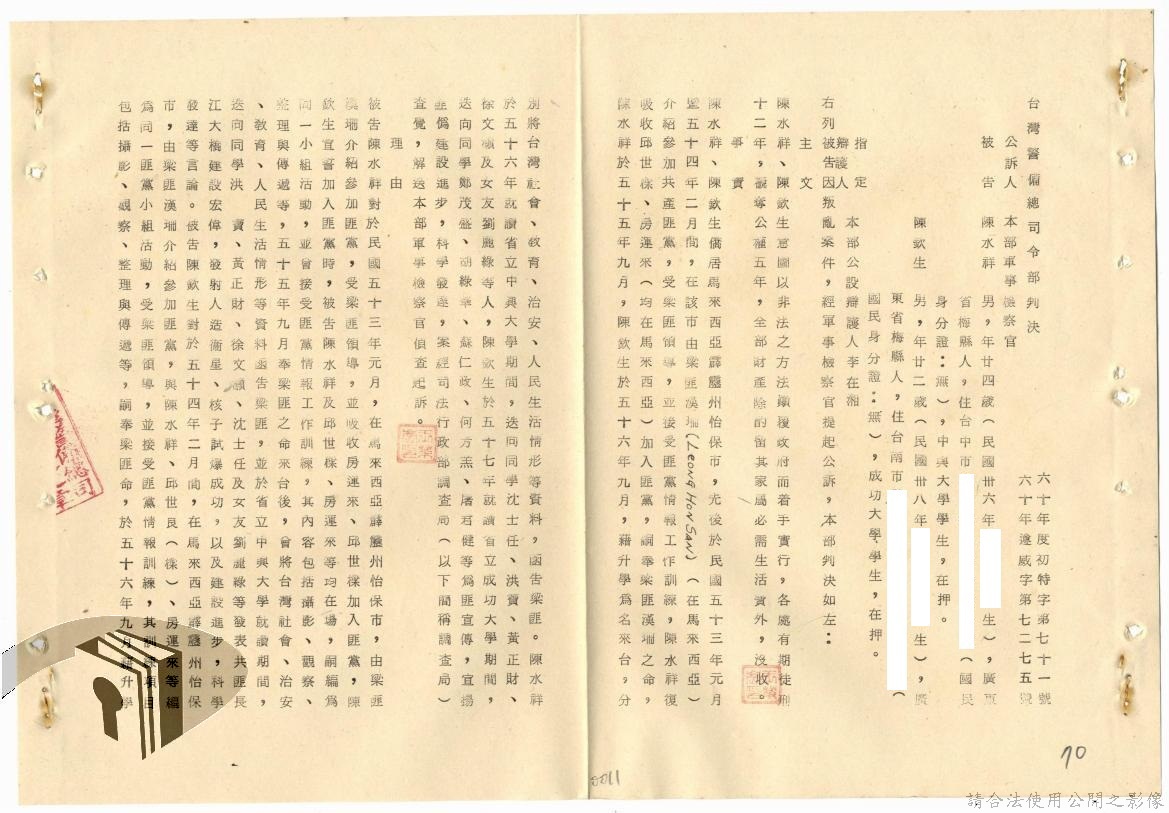 台灣警備總司令部判決
六十年度初特字第七十一號
六十年邀威字第七二七五號
公訴人 本部軍事檢察官
被告 陳水祥 男，年廿四歲（民國卅六年 生），廣東
省梅縣人，住台中市 （國民
身分證：無），中興大學學生，在押。
陳欽生 男，年廿二歲（民國卅八年 生），廣
東省梅縣人，住台南市 （
國民身分證：無），成功大學學生，在押。
指定辯護人 本部公設辯護人李在湘
右列被告因叛亂案件，經軍事檢察官提起公訴，本部判決如左：
主文
陳水祥、陳欽生意圖以非法之方法顛覆政府而着手實行，各處有期徒刑
十二年，褫奪公權五年，全部財產除酌留其家屬必需生活費外，沒收。
事實
陳水祥、陳欽生僑居馬來西亞霹靂州怡保市，先後於民國五十三年元月
暨五十四年二月間，在該市由梁匪漢珊(LEONG HON SAN)（在馬來西亞）
介紹參加共產匪黨，受梁匪領導，並接受匪黨情報工作訓練，陳水祥復
吸收邱世樑、房運來（均在馬來西亞）加入匪黨，嗣奉梁匪漢珊之命，
陳水祥於五十五年九月，陳欽生於五十六年九月，藉升學為名來台，分
別將台灣社會、教育、治安、人民生活情形等資料，函告梁匪。陳水祥
於五十六年就讀省立中興大學期間，迭向同學沈士任、洪 、黃正財、
徐文 及女友劉麗綠等人，陳欽生於五十七年就讀省立成功大學期間，
迭向同學鄭茂盛、胡綠 、蘇仁政、何方 、屠君健等為匪宣傳，宣揚
匪偽建設進步，科學發達，案經司法行政部調查局（以下簡稱調查局）
查覺，解送本部軍事檢察官偵查起訴。
理由
被告陳水祥對於民國五十三年元月，在馬來西亞霹靂州怡保市，由梁匪
漢珊介紹參加匪黨，受梁匪領導，並吸收房運來、邱世樑加入匪黨，陳
欽生宣誓加入匪黨時，被告陳水祥及邱世樑、房運來等均在場，嗣編為
同一小組活動，並曾接受匪黨情報工作訓練，其內容包括攝影、觀察、
整理與傳遞等，五十五年九月奉梁匪之命來台後，曾將台灣社會、治安
、教育、人民生活情形等資料函告梁匪，並於省立中興大學就讀期間，
迭向同學洪 、黃正財、徐文 、沈士任及女友劉麗綠等發表共匪長
江大橋建設宏偉，發射人造衛星、核子試爆成功，以及建設進步，科學
發達等言論。被告陳欽生對於五十四年二月間，在馬來西亞霹靂州怡保
市，由梁匪漢珊介紹參加匪黨，與陳水祥、邱世良（樑）、房運來等編
為同一匪黨小組活動，受梁匪領導，並接受匪黨情報訓練，其訓練項目
包括攝影、觀察、整理與傳遞等，嗣奉梁匪命，於五十六年九月藉升學
70
0011
請合法使用公開之影像